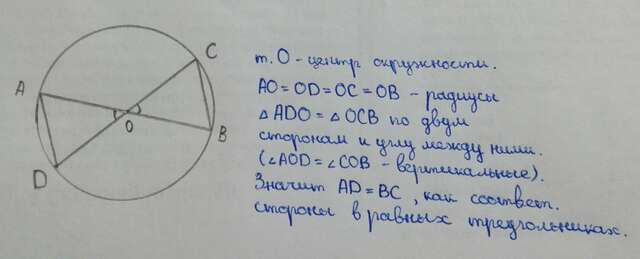 A
C
O
B
D
т. О - центр окружности.
AO = OD = OC = OB - радиусы
△ ADO = △ OCB по двум
сторонам и углу между ними.
(∠AOD = ∠COB - вертикальные).
Значит AD = BC, как соответ.
стороны в равных треугольниках.